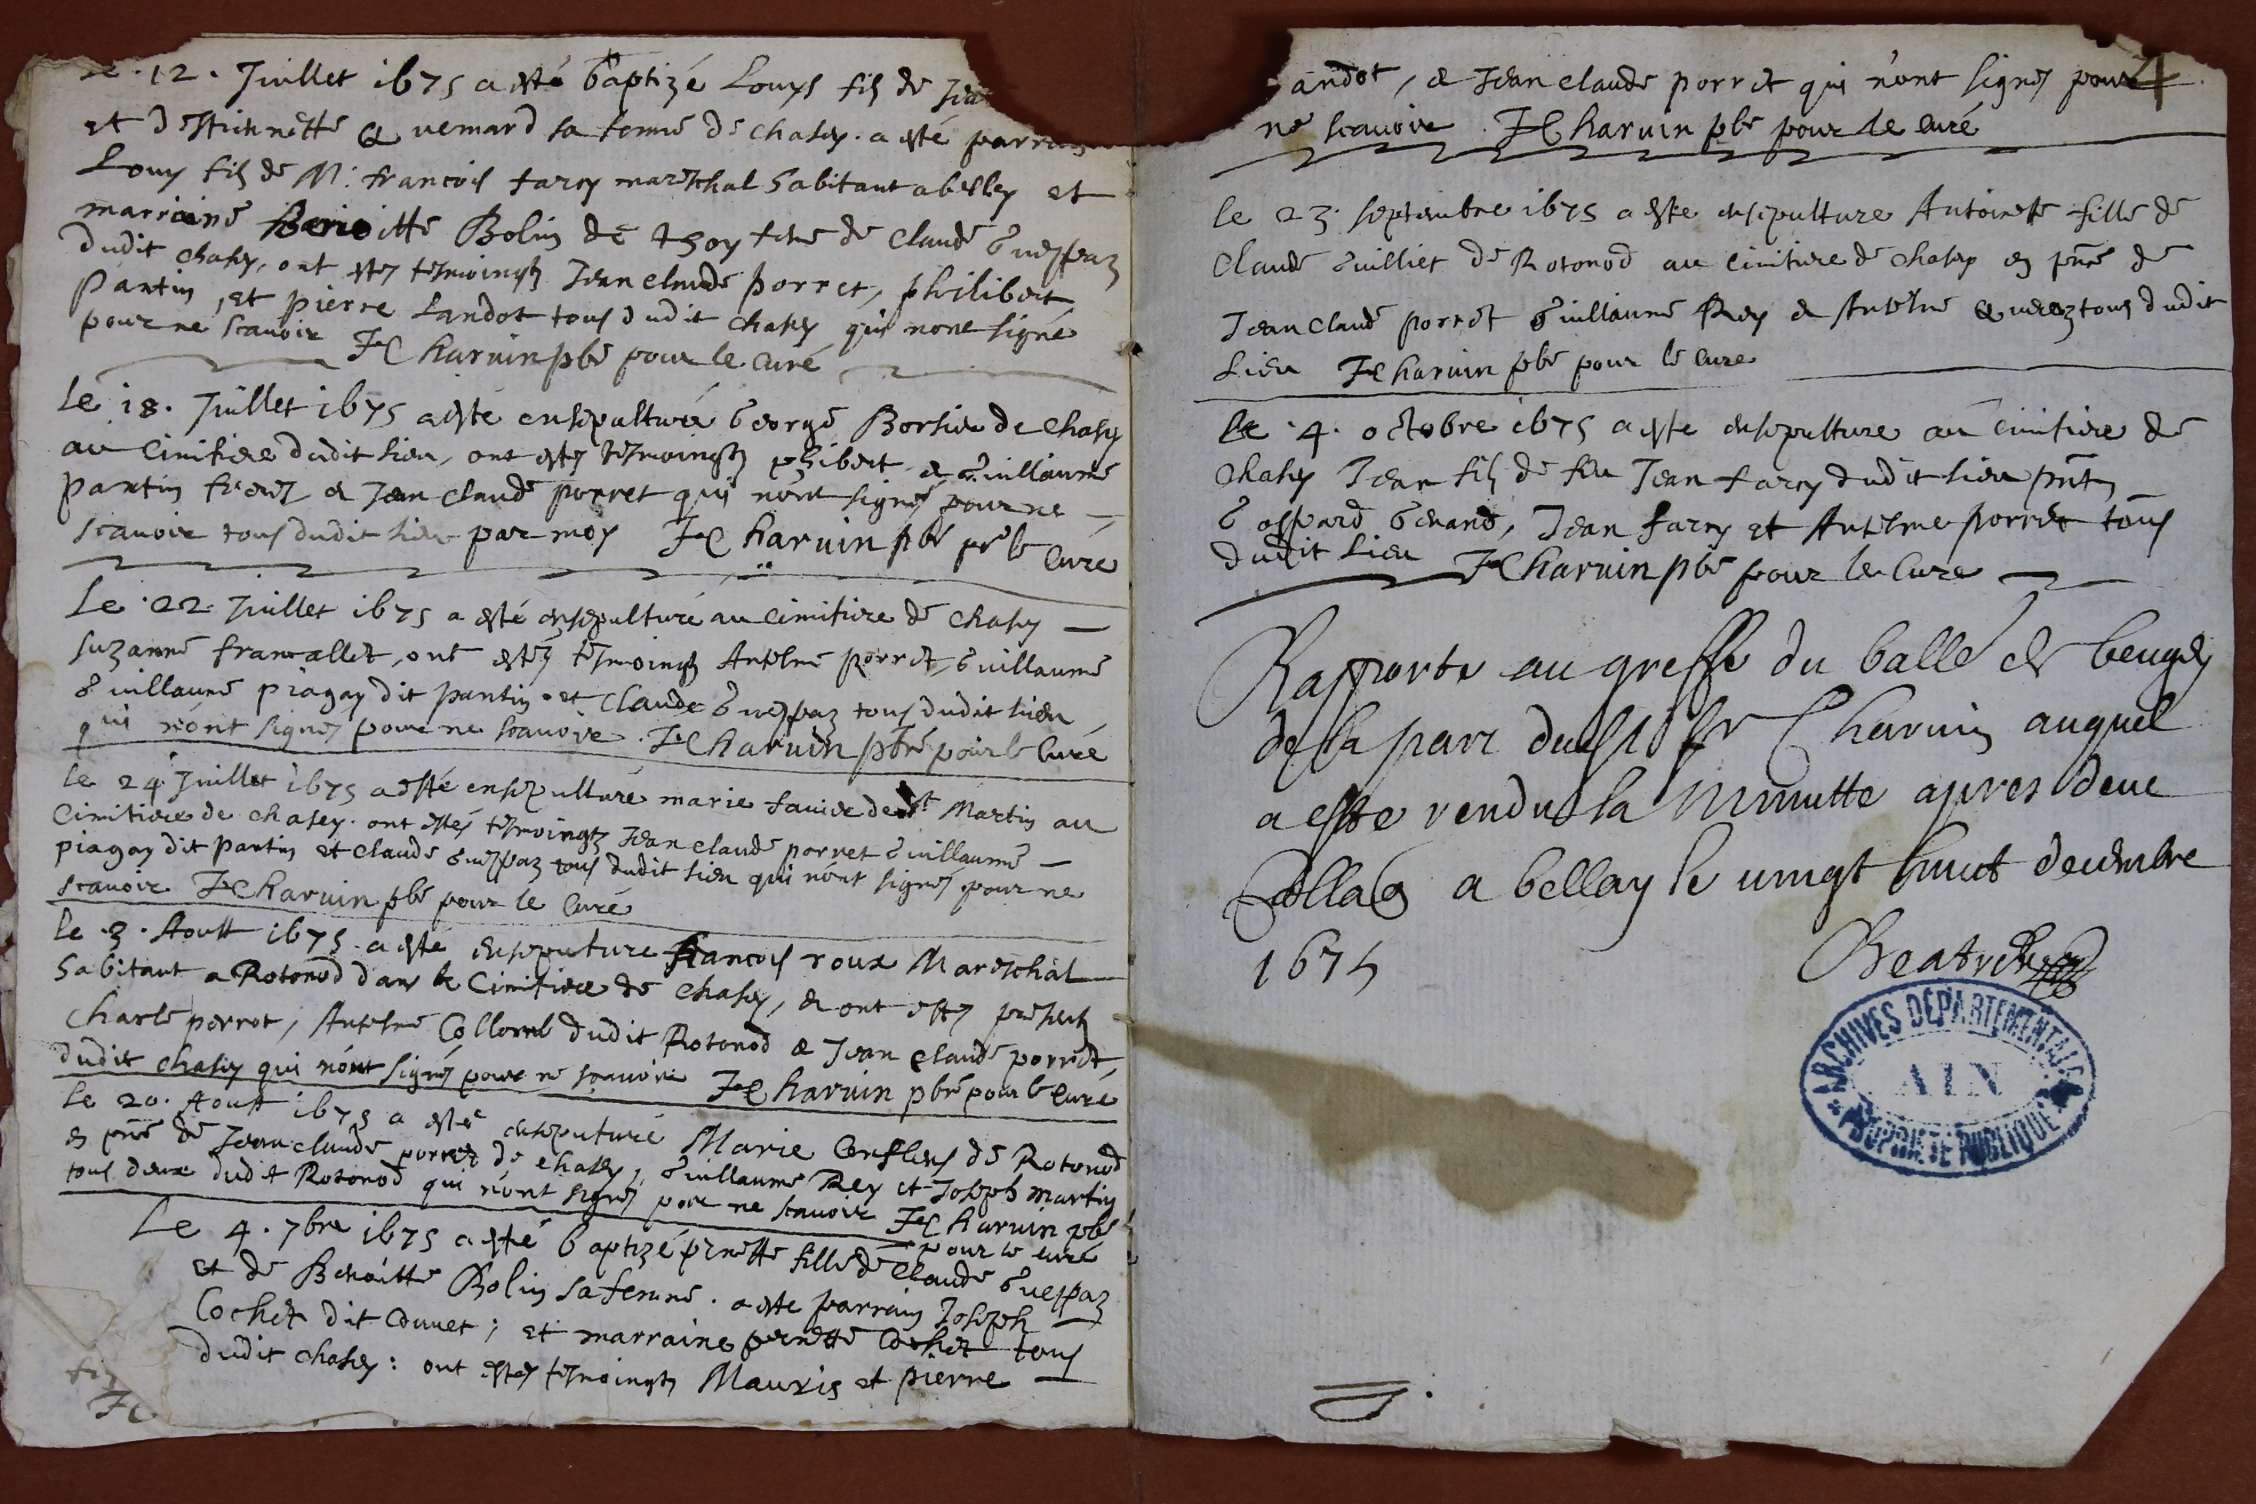 Le .12. Juillet 1675 a esté baptizé Louys filz de Jea
et d'Estiennette Quemard sa feme de Chasey. a esté parrain
Louys filz de Mr. francois farcy mareschal habitant a belley et
marraine Benoitte Bolin de Thoy feme de Claude Guespaz
dudit Chasey, ont estez tesmoingtz Jean claude porret, philibert
pantin, et pierre Landot tous dudit Chasey qui n'ont signé
pour ne scavoir JC harvin pbre pour le curé
Le 18. Juillet 1675 a esté ensepulturé George Borsier de Chasey
au cimitiere dudit lieu, ont estez tesmoingtz phibert et Guillaume
pantin freres et Jean claude porret qui n'ont signez pour ne
scavoir tous dudit lieu par moy JC harvin pbre pr le Curé
Le .22. Juillet 1675 a esté ensepulturé au Cimitiere de Chasey
suzanne francallet, ont estez tesmoingtz Antelme porret, Guillaume
Guillaume piagay dit pantin et Claude Guespaz tous dudit lieu
qui n'ont signez pour ne scavoir. JC harvin pbre pour le Curé
Le 24. Juillet 1675 a esté ensepulturé marie favier de st Martin au
Cimitiere de chasey. ont estés tesmoingtz Jean claude porret Guillaume
piagay dit pantin et claude Guespaz tous dudit lieu qui n'ont signez pour ne
scavoir JC harvin pbre pour le Curé
Le .3. Aoust 1675. a esté ensepulture francois roux Mareschal
habitant a Rotonod dans le Cimitiere de Chasey, et ont estez presents
Charle perrot, Antelme Collomb dudit Rotonod et Jean Claude porret,
dudit chasey qui n'ont signéz pour ne scavoir JC harvin pbre pour le Curé
Le 20. Aoust 1675 a esté ensepulturé Marie Conflens de Rotonod
en pnce de Jean claude porret de Chasey, Guillaume Rey et Joseph Martin
tous deux dudit Rotonod qui n'ont signez pour ne scavoir JC harvin pbre
pour le curé
Le 4. 7bre 1675 a esté baptizé pernette fille de Claude Guespaz
et de Benoitte Bolin sa femme. a este parrain Joseph
Cochet dit Couvet; et marraine pernette Cochet tous
dudit chasey: ont estez tesmoingtz Mauris et pierre
JC
andot, et Jean claude porret qui n'ont signez pour
ne scavoir. JC harvin pbre pour le curé
4
Le 23. septembre 1675 a este ensepulture Antoinette fille de
Claude Guilliet de Rotonod au cimitiere de chasey en pnce de
Jean claude porret Guillaume Rey et Antelme tous dudit
Lieu JC harvin pbre pour le Cure
Le .4. octobre 1675 a este ensepulture au cimitiere de
Chasey Jean filz de feu Jean farcy dudit lieu pnts
Gaspard Genand, Jean farcy et Antelme porret tous
dudit lieu JC harvin pbre pour le Cure
Rapporte au greffe du balle de beugey
de la part dudit Sr Charvin auquel
a este rendu la minutte apres deue
Colla&#8288;on a bellay le vingt huict decembre
1675
Beatrix
ARCHIVES DÉPARTEMENTALES
AIN
PROPRIÉTÉ PUBLIQUE